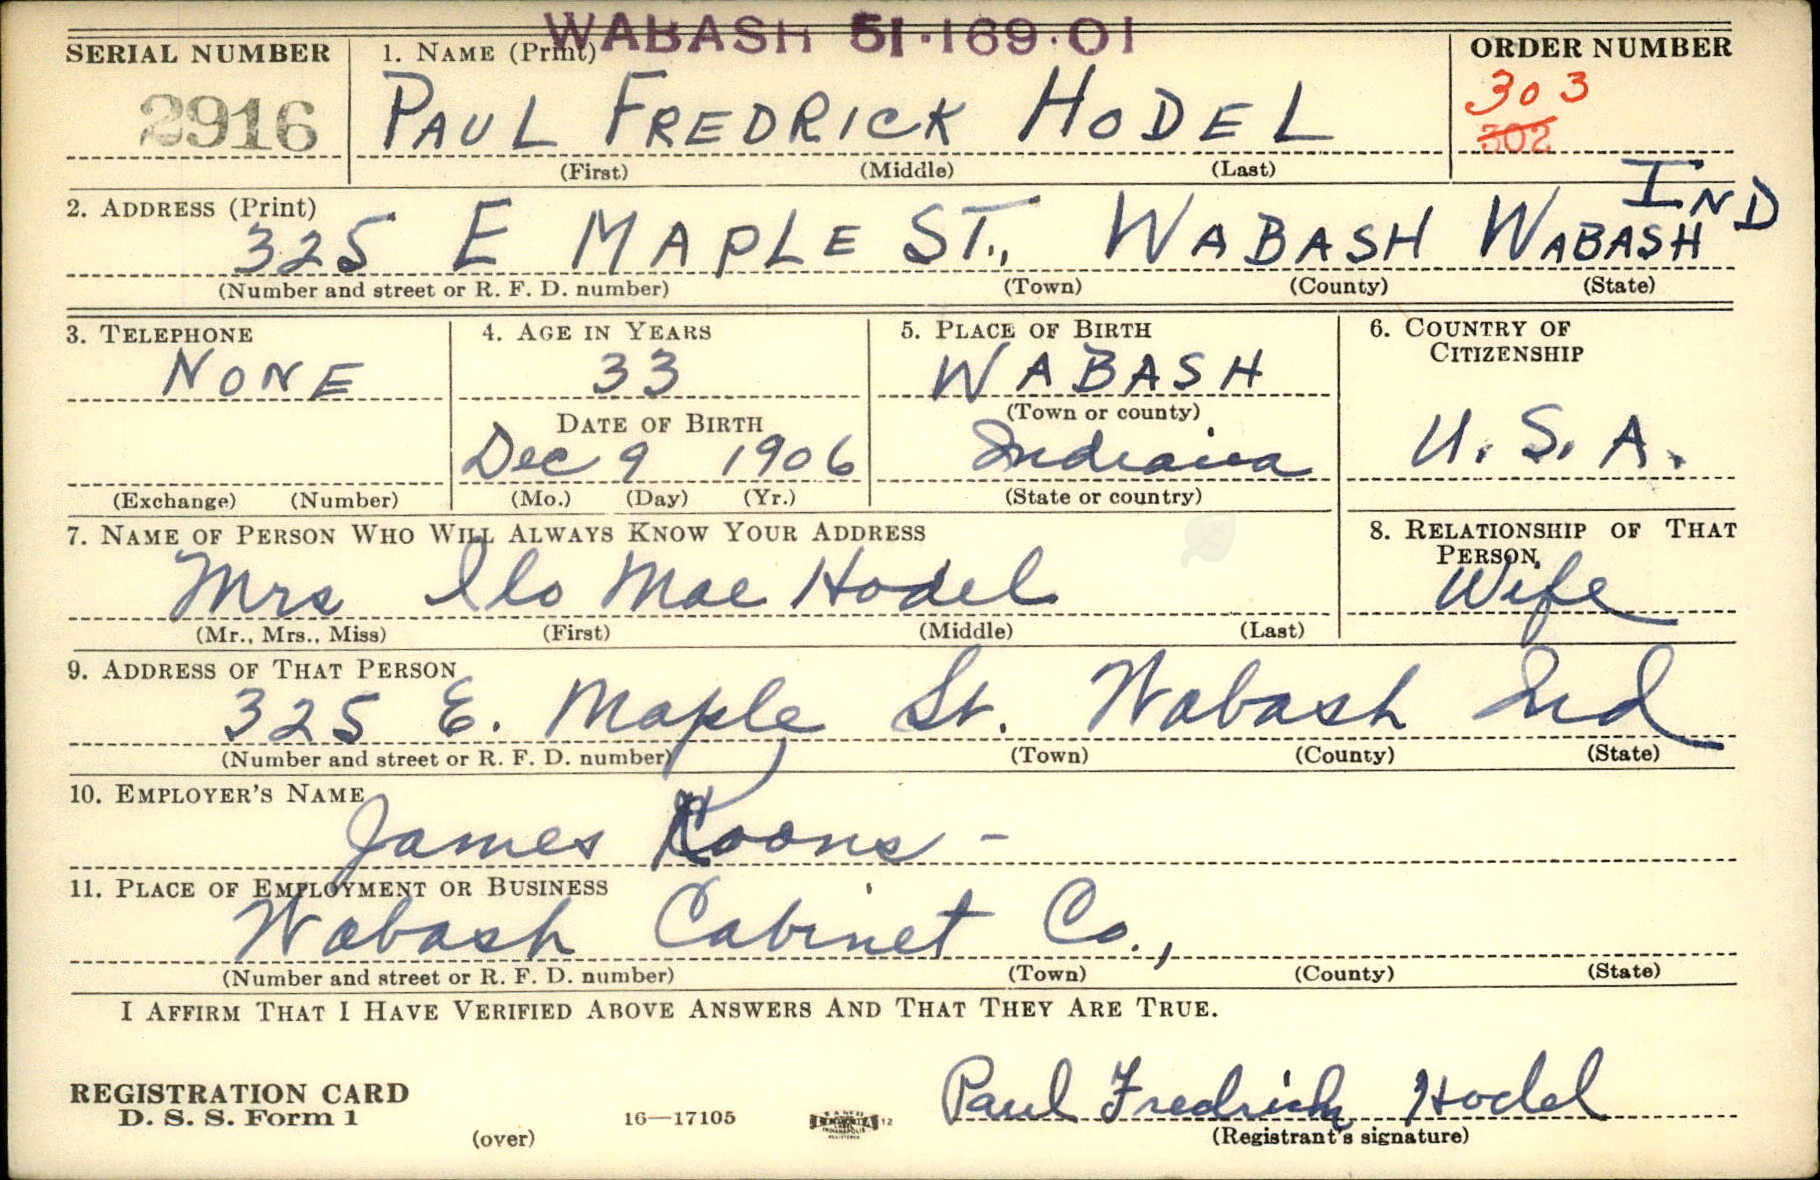 WABASH 51·169·01
SERIAL NUMBER 1. NAME (Print) ORDER NUMBER
2916 PAUL FREDRICK HODEL 303
302
(First) (Middle) (Last)
IND
2. ADDRESS (Print)
325 E MAPLE ST., WABASH WABASH
(Number and street or R. F. D. number) (Town) (County) (State)
3. TELEPHONE 4. AGE IN YEARS 5. PLACE OF BIRTH 6. COUNTRY OF
CITIZENSHIP
NONE 33 WABASH
DATE OF BIRTH (Town or county)
Dec 9 1906 Indiana U. S. A.
(Exchange) (Number) (Mo.) (Day) (Yr.) (State or country)
7. NAME OF PERSON WHO WILL ALWAYS KNOW YOUR ADDRESS 8. RELATIONSHIP OF THAT
PERSON
Mrs Ilo Mae Hodel Wife
(Mr., Mrs., Miss) (First) (Middle) (Last)
9. ADDRESS OF THAT PERSON
325 E. Maple St. Wabash Ind
(Number and street or R. F. D. number) (Town) (County) (State)
10. EMPLOYER'S NAME
James Koons -
11. PLACE OF EMPLOYMENT OR BUSINESS
Wabash Cabinet Co.,
(Number and street or R. F. D. number) (Town) (County) (State)
I AFFIRM THAT I HAVE VERIFIED ABOVE ANSWERS AND THAT THEY ARE TRUE.
REGISTRATION CARD
D. S. S. Form 1 16—17105 12 Paul Fredrick Hodel
(over) (Registrant's signature)